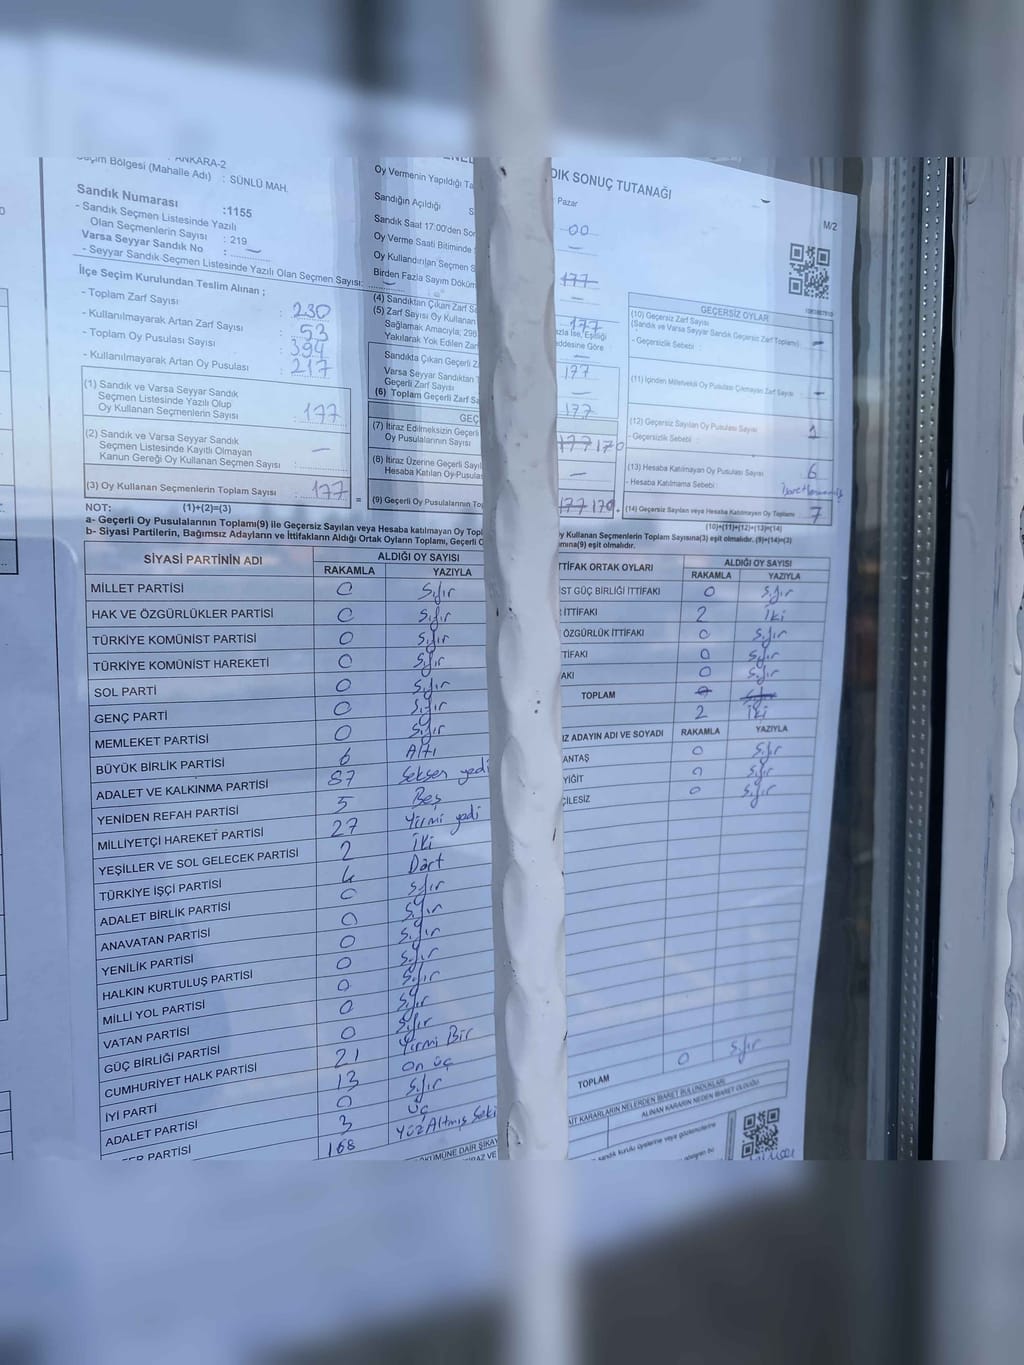 ANKARA-2
Seçim Bölgesi (Mahalle Adı) : SÜNLÜ MAH.
Sandık Numarası :1155
- Sandık Seçmen Listesinde Yazılı
Olan Seçmenlerin Sayısı : 219
Varsa Seyyar Sandık No :
- Seyyar Sandık Seçmen Listesinde Yazılı Olan Seçmen Sayısı:
İlçe Seçim Kurulundan Teslim Alınan ;
- Toplam Zarf Sayısı : 230
- Kullanılmayarak Artan Zarf Sayısı : 53
- Toplam Oy Pusulası Sayısı : 394
- Kullanılmayarak Artan Oy Pusulası : 217
(1) Sandık ve Varsa Seyyar Sandık
Seçmen Listesinde Yazılı Olup
Oy Kullanan Seçmenlerin Sayısı : 177
(2) Sandık ve Varsa Seyyar Sandık
Seçmen Listesinde Kayıtlı Olmayan
Kanun Gereği Oy Kullanan Seçmen Sayısı : —
(3) Oy Kullanan Seçmenlerin Toplam Sayısı : 177 =
NOT: (1)+(2)=(3)
Oy Vermenin Yapıldığı
DIK SONUÇ TUTANAĞI
Sandığın Açıldığı
Pazar
M/2
Sandık Saat 17:00'den
00
Oy Verme Saati Bitiminde
Oy Kullandırılan Seçmen
Birden Fazla Sayım
177
(4) Sandıktan Çıkan Zarf
(5) Zarf Sayısı Oy Kullanan
177
Sağlamak Amacıyla; 298
Yakılarak Yok Edilen
ddesine Göre
Sandıkta Çıkan Geçerli
177
Varsa Seyyar Sandıktan
Geçerli Zarf Sayısı
(6) Toplam Geçerli Zarf
177
(7) İtiraz Edilmeksizin Geçerli
Oy Pusulalarının Sayısı
177 170
(8) İtiraz Üzerine Geçerli
Hesaba Katılan
—
(9) Geçerli Oy Pusulalarının
177 170
GEÇERSİZ OYLAR
(10) Geçersiz Zarf Sayısı
(Sandık ve Varsa Seyyar Sandık Geçersiz Zarf Toplamı) : —
- Geçersizlik Sebebi :
(11) İçinden Milletvekili Oy Pusulası Çıkmayan Zarf Sayısı : —
(12) Geçersiz Sayılan Oy Pusulası Sayısı : 1
- Geçersizlik Sebebi :
(13) Hesaba Katılmayan Oy Pusulası Sayısı : 6
- Hesaba Katılmama Sebebi :
(14) Geçersiz Sayılan veya Hesaba Katılmayan Oy Toplamı : 7
(10)+(11)+(12)+(13)=(14)
a- Geçerli Oy Pusulalarının Toplamı(9) ile Geçersiz Sayılan veya Hesaba katılmayan Oy
Kullanan Seçmenlerin Toplam Sayısına(3) eşit olmalıdır. (9)+(14)=(3)
b- Siyasi Partilerin, Bağımsız Adayların ve İttifakların Aldığı Ortak Oyların Toplamı, Geçerli
eşit olmalıdır.
SİYASİ PARTİNİN ADI ALDIĞI OY SAYISI
RAKAMLA YAZIYLA
MİLLET PARTİSİ 0 Sıfır
HAK VE ÖZGÜRLÜKLER PARTİSİ 0 Sıfır
TÜRKİYE KOMÜNİST PARTİSİ 0 Sıfır
TÜRKİYE KOMÜNİST HAREKETİ 0 Sıfır
SOL PARTİ 0 Sıfır
GENÇ PARTİ 0 Sıfır
MEMLEKET PARTİSİ 0 Sıfır
BÜYÜK BİRLİK PARTİSİ 6 Altı
ADALET VE KALKINMA PARTİSİ 87 Seksen yedi
YENİDEN REFAH PARTİSİ 5 Beş
MİLLİYETÇİ HAREKET PARTİSİ 27 Yirmi yedi
YEŞİLLER VE SOL GELECEK PARTİSİ 2 İki
TÜRKİYE İŞÇİ PARTİSİ 4 Dört
ADALET BİRLİK PARTİSİ 0 Sıfır
ANAVATAN PARTİSİ 0 Sıfır
YENİLİK PARTİSİ 0 Sıfır
HALKIN KURTULUŞ PARTİSİ 0 Sıfır
MİLLİ YOL PARTİSİ 0 Sıfır
VATAN PARTİSİ 0 Sıfır
GÜÇ BİRLİĞİ PARTİSİ 0 Sıfır
CUMHURİYET HALK PARTİSİ 21 Yirmi Bir
İYİ PARTİ 13 On üç
ADALET PARTİSİ 0 Sıfır
PARTİSİ 3 üç
168 YüzAltmış
TTİFAK ORTAK OYLARI ALDIĞI OY SAYISI
RAKAMLA YAZIYLA
İST GÜÇ BİRLİĞİ İTTİFAKI 0 Sıfır
İTTİFAKI 2 İki
ÖZGÜRLÜK İTTİFAKI 0 Sıfır
TİFAKI 0 Sıfır
AKI 0 Sıfır
TOPLAM 0 Sıfır
2 İki
IZ ADAYIN ADI VE SOYADI RAKAMLA YAZIYLA
ANTAŞ 0 Sıfır
YİĞİT 0 Sıfır
ÇİLESİZ 0 Sıfır
TOPLAM 0 Sıfır
KARARLARIN NELERDEN İBARET BULUNDUKLARI
ALINAN KARARIN NEDEN İBARET OLDUĞU